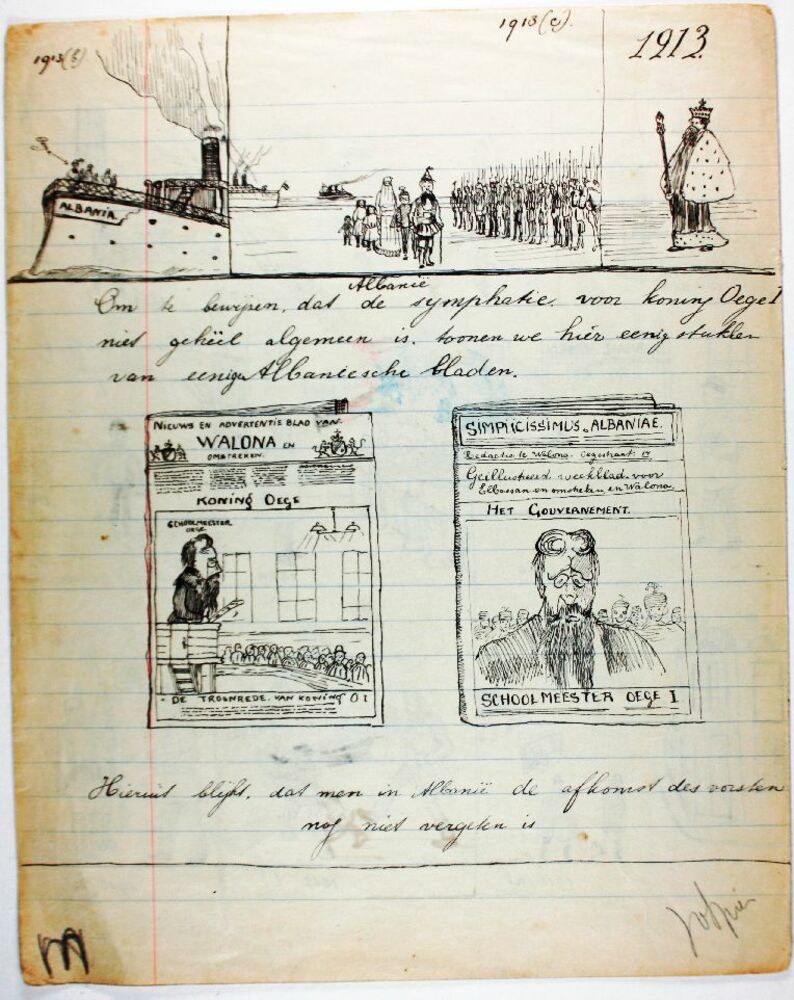 1913(b)
1913(c).
1913.
ALBANIA
Albanië
Om te bewijzen, dat de symphatie. voor koning Oege I
niet geheel algemeen is. toonen we hier eenig stukken
van eenige Albaneesche bladen.
NIEUWS EN ADVERTENTIE BLAD VAN
WALONA EN
OMSTREKEN.
KONING OEGE
SCHOOLMEESTER
OEGE
DE TROONREDE. VAN KONING O I
SIMPLICISSIMUS. ALBANIAE.
Redactie te Walona. Oegestraat
Geïllustreerd weekblad. voor
Elbassan en omstreken en Walona.
HET GOUVERNEMENT.
SCHOOLMEESTER OEGE I
Hieruit blijkt. dat men in Albanië de afkomst des vorsten
nog niet vergeten is
M